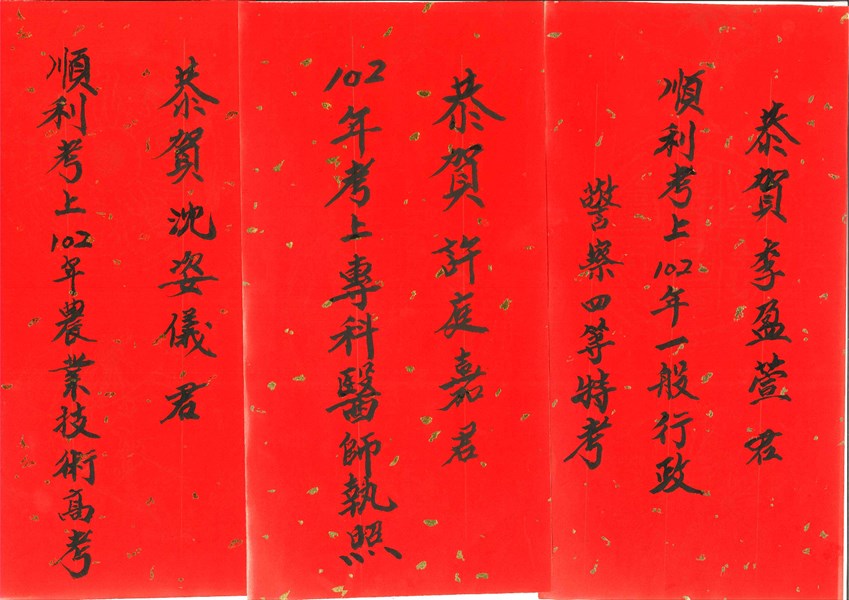 恭賀李盈萱君
順利考上102年一般行政
警察四等特考
恭賀許庭嘉君
102年考上專科醫師執照
恭賀沈姿儀君
順利考上102年農業技術高考